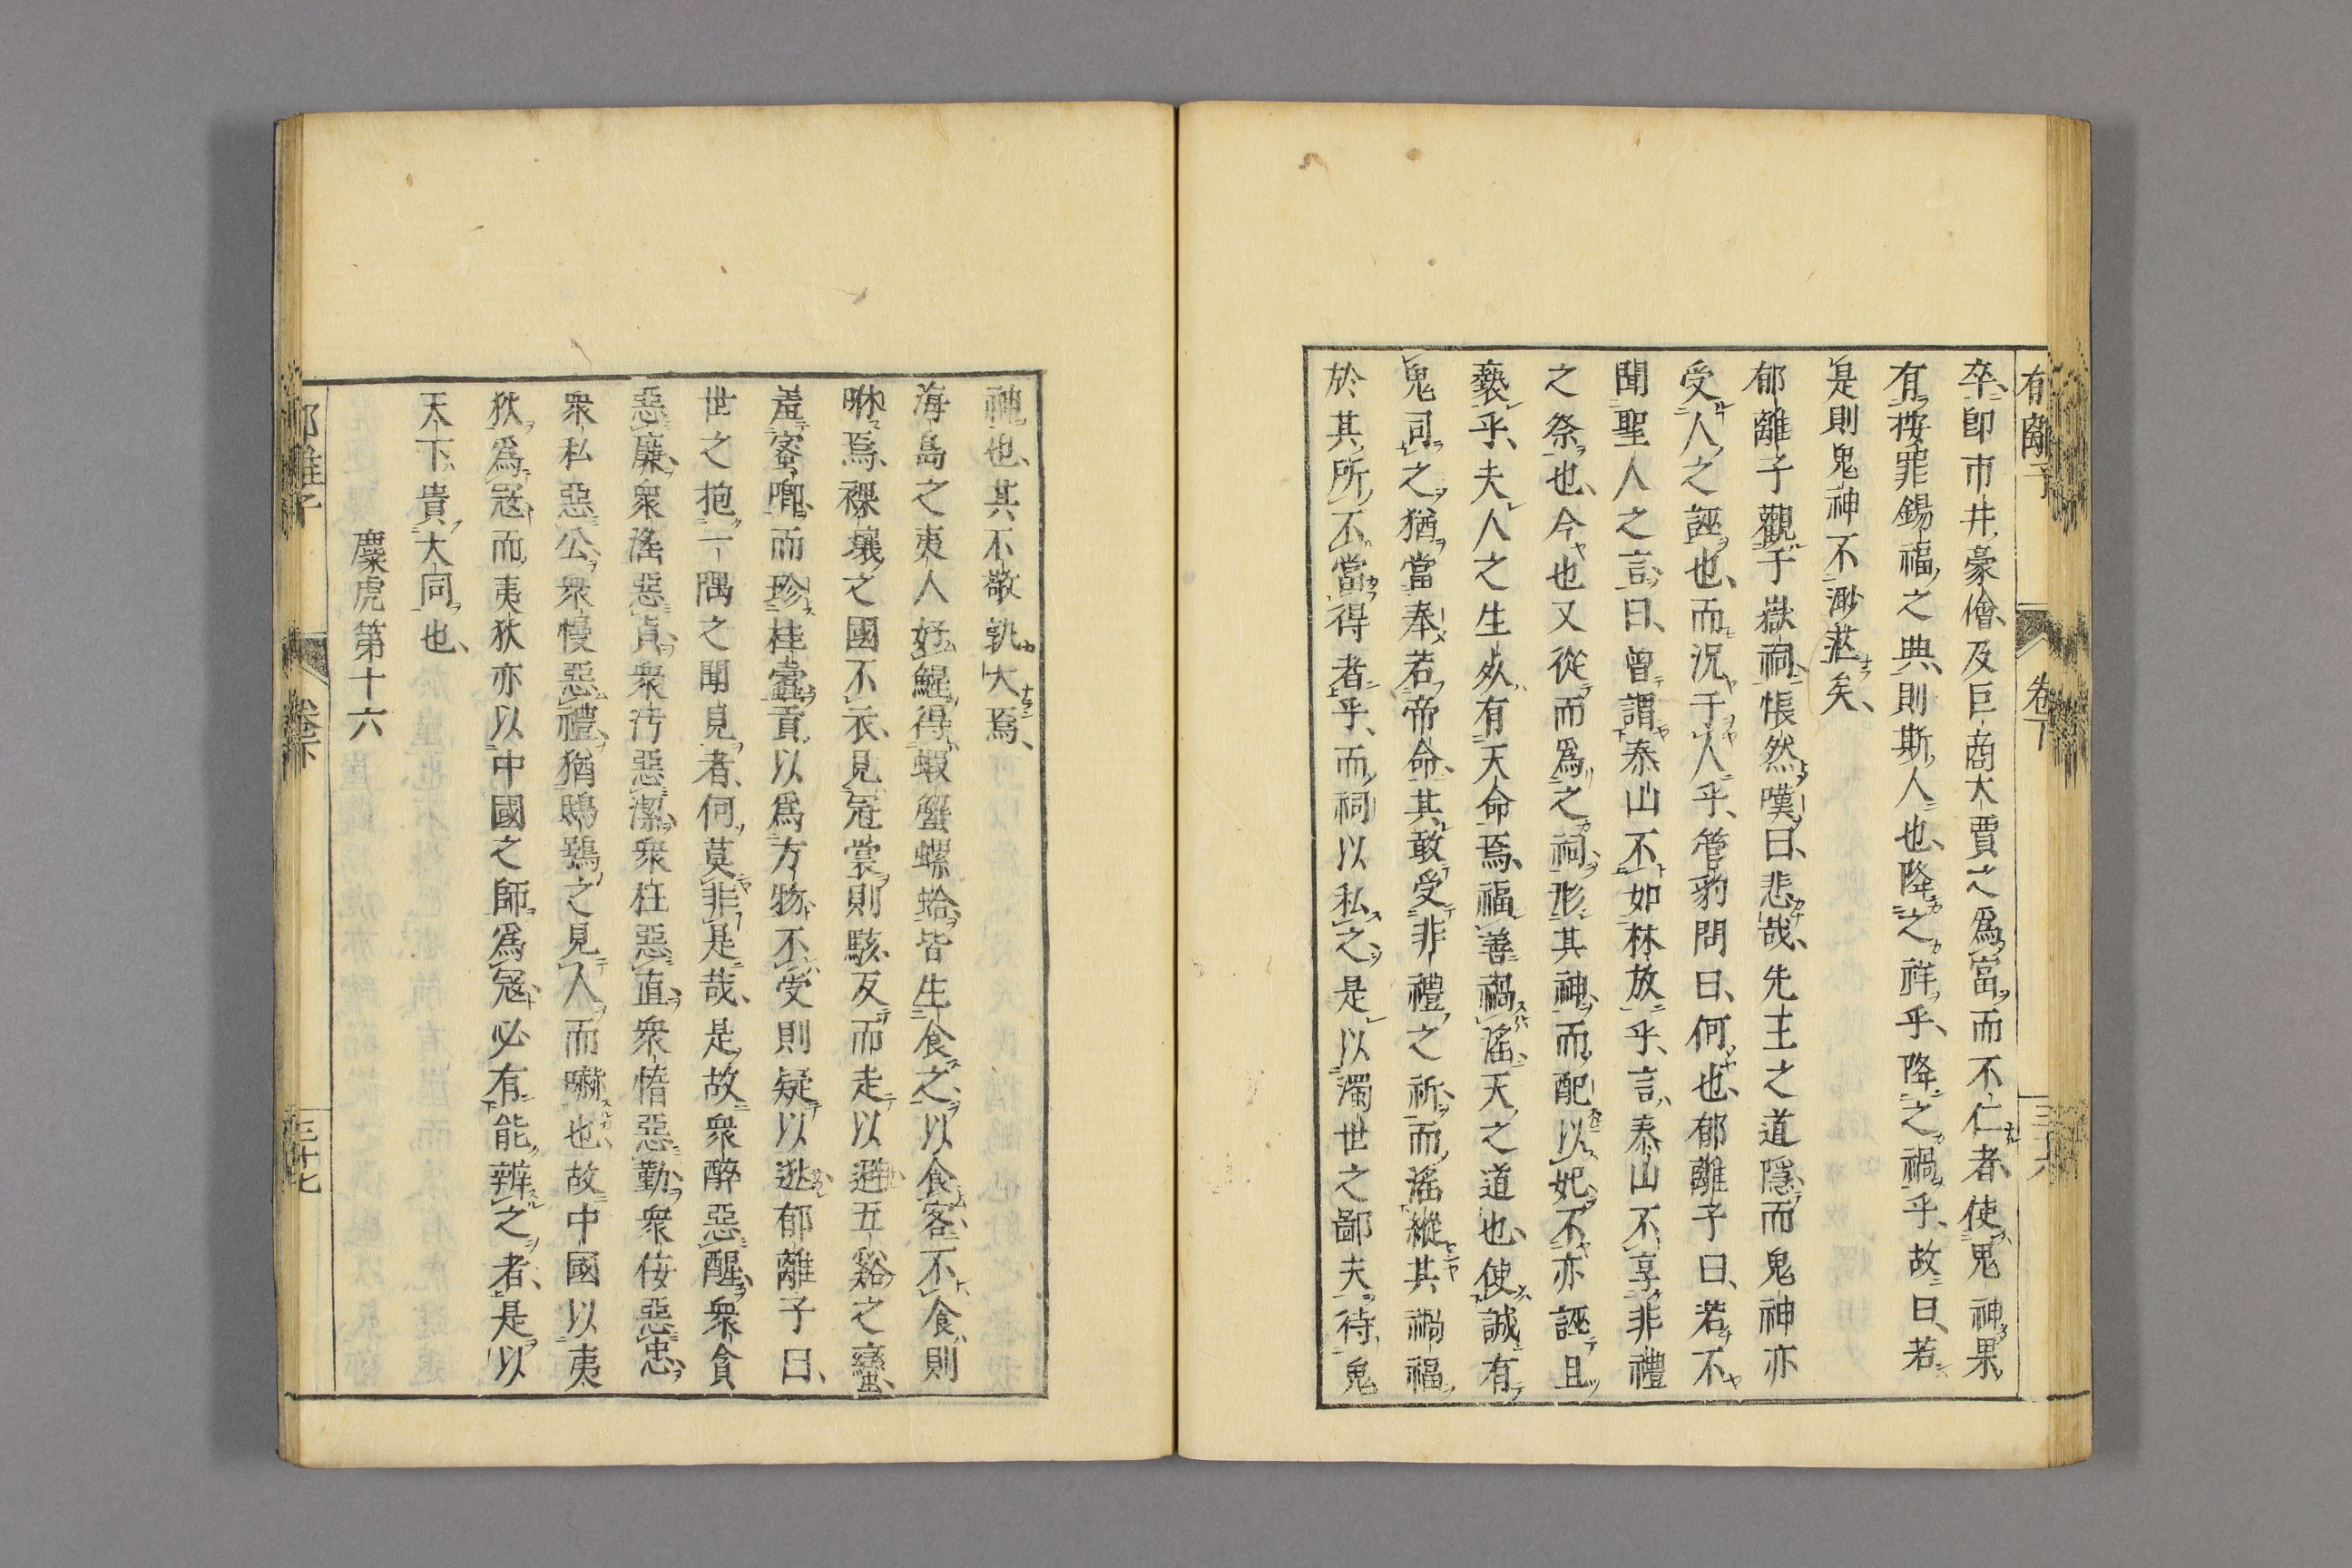 卒、卽市井豪儈、及巨商大賈之爲富而不仁者、使鬼神果
有按罪錫福之典、則斯人也、降之祥乎、降之禍乎、故曰、若
是則鬼神不渺茫矣、
郁離子觀于嶽祠、悵然嘆曰、悲哉、先王之道隱而鬼神亦
受人之誣也、而況于人乎、管豹問曰、何也、郁離子曰、若不
聞聖人之言曰、曾謂泰山不如林放乎、言泰山不享非禮
之祭也、今也又從而爲之祠、形其神而配以妃、不亦誣且
褻乎、夫人之生死有天命焉、福善禍淫、天之道也、使誠有
鬼司之、猶當奉若帝命、其敢受非禮之祈、而淫縱其禍福
於其所不當得者乎、而祠以私之、是以濁世之鄙夫待鬼
神也、其不敬孰大焉、
海島之夷人好鯹、得蝦蟹螺蛤、皆生食之、以食客、不食則
咻焉、裸壤之國不衣、見冠裳則駭、反而走以避、五谿之蠻、
羞蜜唧而珍桂蠹、貢以爲方物、不受則疑以逖、郁離子曰、
世之抱一隅之聞見者、何莫非是哉、是故衆醉惡醒、衆貪
惡廉、衆淫惡貞、衆汚惡潔、衆枉惡直、衆惰惡勤、衆佞惡忠、
衆私惡公、衆慢惡禮、猶鴟鵶之見人而嚇也、故中國以夷
狄爲寇、而夷狄亦以中國之師爲寇、必有能辨之者、是以
天下貴大同也、
麋虎第十六
郁離子
卷下
三十七